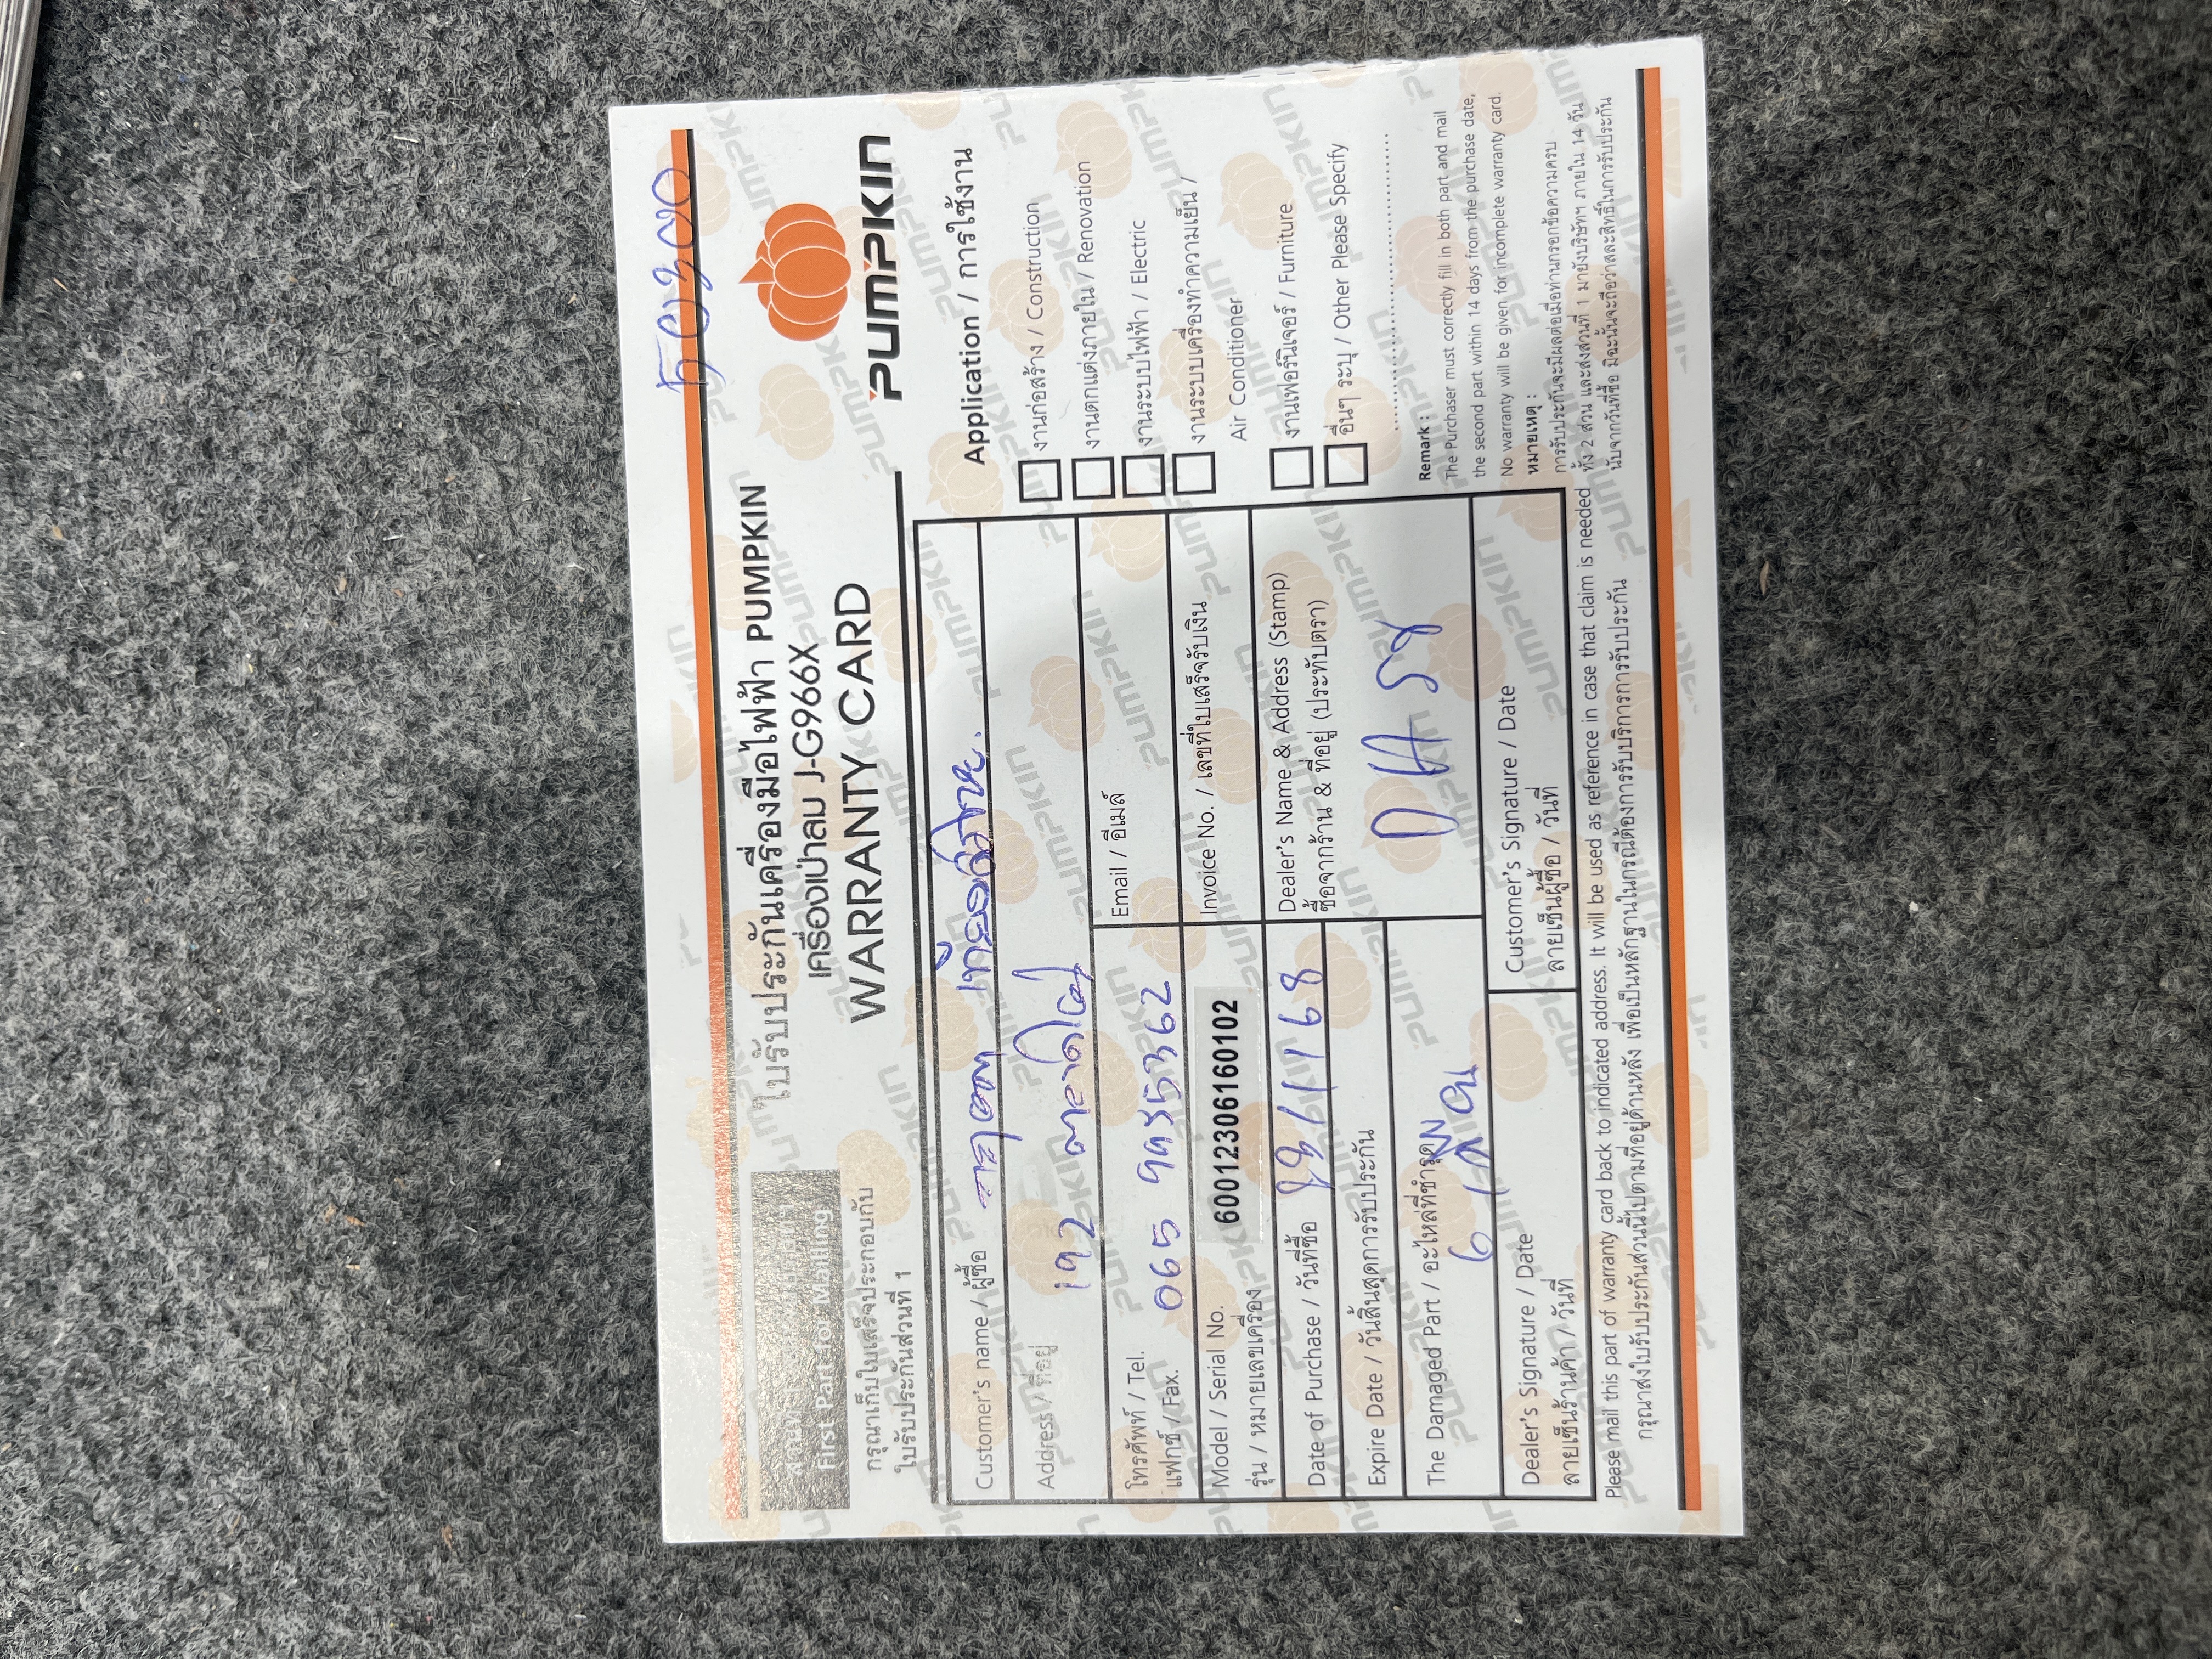 ใบรับประกันเครื่องมือไฟฟ้า PUMPKIN
เครื่องเป่าลม J-G966X
WARRANTY CARD
PUMPKIN
First Part for Mailing
กรุณาเก็บใบเสร็จประกอบกับ
ใบรับประกันส่วนที่ 1
Customer's name / ผู้ซื้อ
Address / ที่อยู่ 192
โทรศัพท์ / Tel. 065 9935362
แฟกซ์ / Fax.
Email / อีเมล์
Model / Serial No. 6001230616010​2
รุ่น / หมายเลขเครื่อง
Invoice No. / เลขที่ใบเสร็จรับเงิน
Date of Purchase / วันที่ซื้อ
Expire Date / วันสิ้นสุดการรับประกัน
Dealer's Name & Address (Stamp)
ซื้อจากร้าน & ที่อยู่ (ประทับตรา)
The Damaged Part / อะไหล่ที่ชำรุด
Dealer's Signature / Date
ลายเซ็นร้านค้า / วันที่
Customer's Signature / Date
ลายเซ็นผู้ซื้อ / วันที่
Application / การใช้งาน
งานก่อสร้าง / Construction
งานตกแต่งภายใน / Renovation
งานระบบไฟฟ้า / Electric
งานระบบเครื่องทำความเย็น /
Air Conditioner
งานเฟอร์นิเจอร์ / Furniture
อื่นๆ ระบุ / Other Please Specify
Remark :
The Purchaser must correctly fill in both part and mail
the second part within 14 days from the purchase date,
No warranty will be given for incomplete warranty card.
หมายเหตุ :
การรับประกันจะมีผลต่อเมื่อท่านกรอกข้อความครบ
ทั้ง 2 ส่วน และส่งส่วนที่ 1 มายังบริษัทฯ ภายใน 14 วัน
นับจากวันที่ซื้อ มิฉะนั้นจะถือว่าสละสิทธิ์ในการรับประกัน
Please mail this part of warranty card back to indicated address. It will be used as reference in case that claim is needed
กรุณาส่งใบรับประกันส่วนนี้ไปตามที่อยู่ด้านหลัง เพื่อเป็นหลักฐานในกรณีต้องการรับบริการการรับประกัน